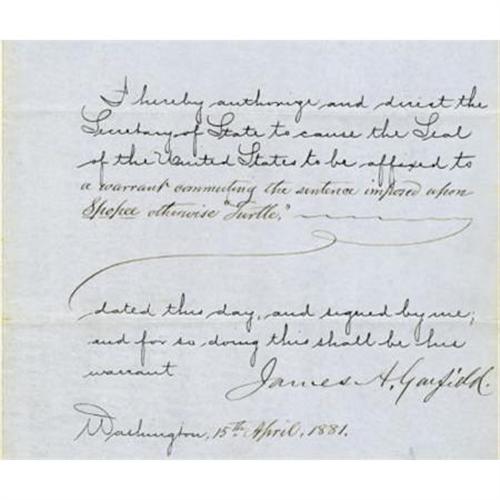 I hereby authorize and direct the
Secretary of State to cause the Seal
of the United States to be affixed to
a warrant commuting the sentence imposed upon
Spopee otherwise "Turtle,"
dated this day, and signed by me;
and for so doing this shall be his
warrant
James A. Garfield.
Washington, 15th April, 1881.